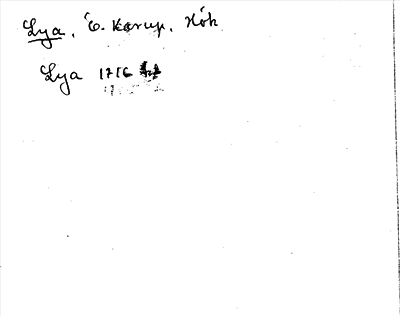 Lya, Ö. Karup, Höks
Lya 1716